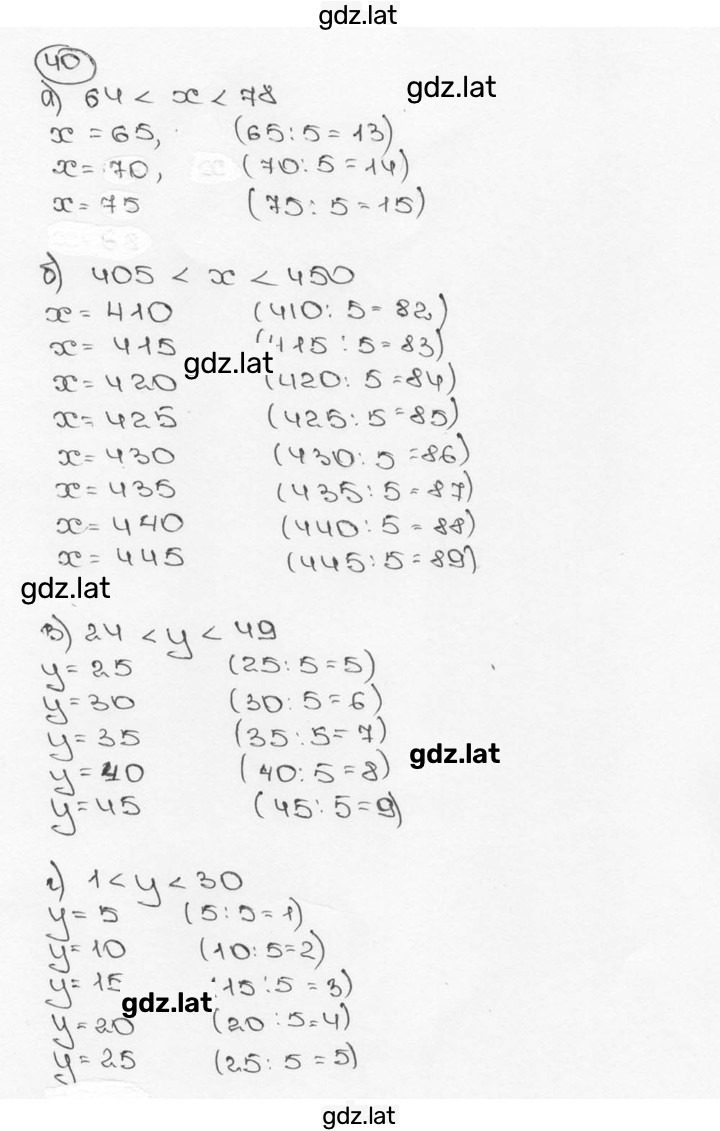 gdz.lat
40
gdz.lat
а) 64 < x < 78
x = 65, (65:5=13)
x = 70, (70:5=14)
x = 75 (75:5=15)
б) 405 < x < 450
x = 410 (410:5=82)
x = 415 (415:5=83)
gdz.lat
x = 420 (420:5=84)
x = 425 (425:5=85)
x = 430 (430:5=86)
x = 435 (435:5=87)
x = 440 (440:5=88)
x = 445 (445:5=89)
gdz.lat
в) 24 < y < 49
y = 25 (25:5=5)
y = 30 (30:5=6)
y = 35 (35:5=7)
gdz.lat
y = 40 (40:5=8)
y = 45 (45:5=9)
г) 1 < y < 30
y = 5 (5:5=1)
y = 10 (10:5=2)
y = 15 15:5=3)
gdz.lat
y = 20 (20:5=4)
y = 25 (25:5=5)
gdz.lat